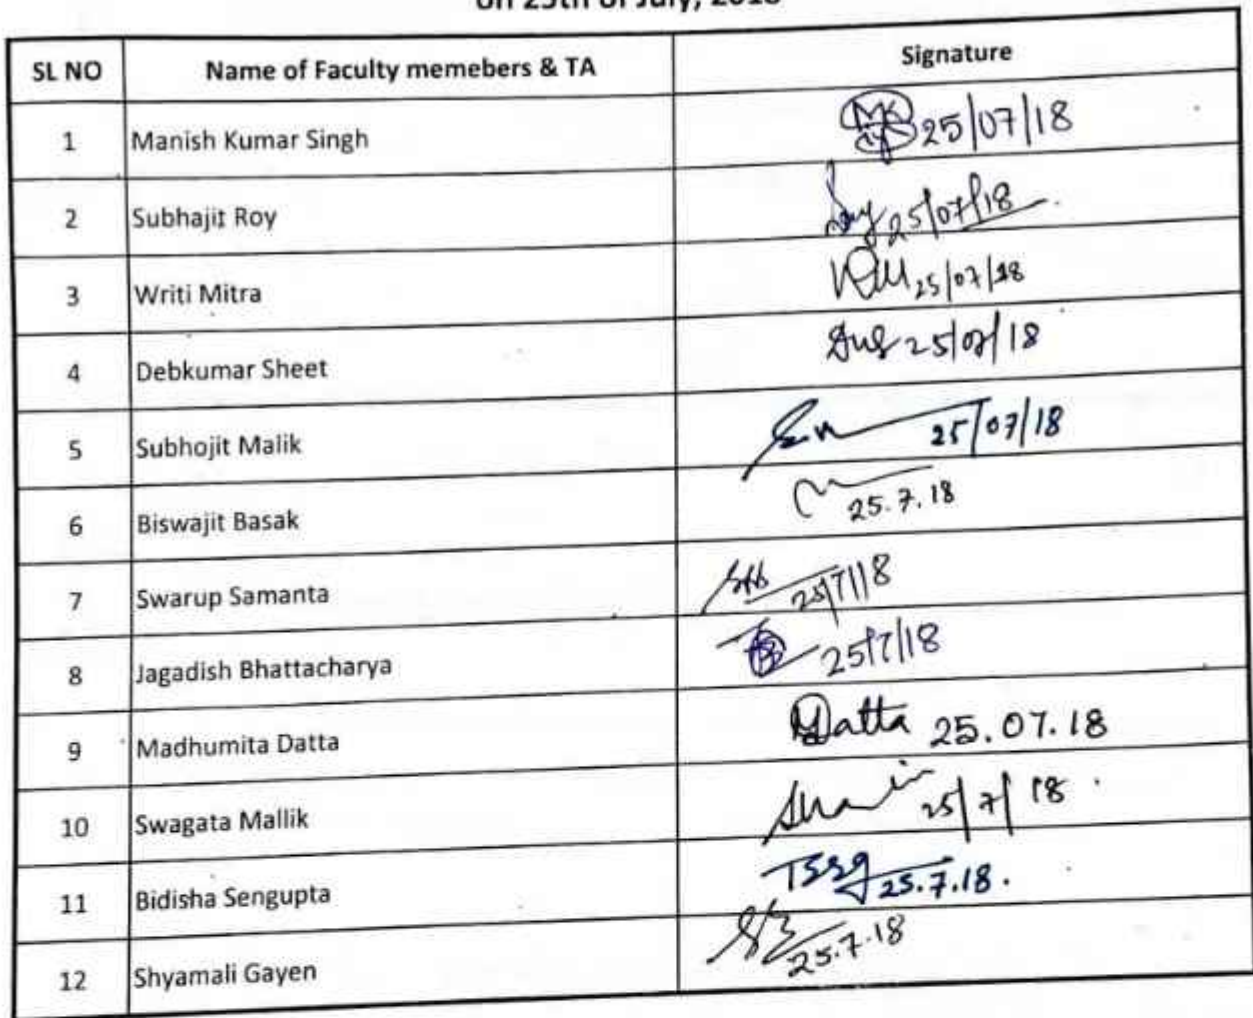 on 25th of July, 2018
SL NO Name of Faculty memebers & TA Signature
1 Manish Kumar Singh 25/07/18
2 Subhajit Roy 25/07/18
3 Writi Mitra 25/07/18
4 Debkumar Sheet 25/07/18
5 Subhojit Malik 25/07/18
6 Biswajit Basak 25.7.18
7 Swarup Samanta 25/7/18
8 Jagadish Bhattacharya 25/7/18
9 Madhumita Datta Datta 25.07.18
10 Swagata Mallik 25/7/18
11 Bidisha Sengupta 25.7.18.
12 Shyamali Gayen 25.7.18